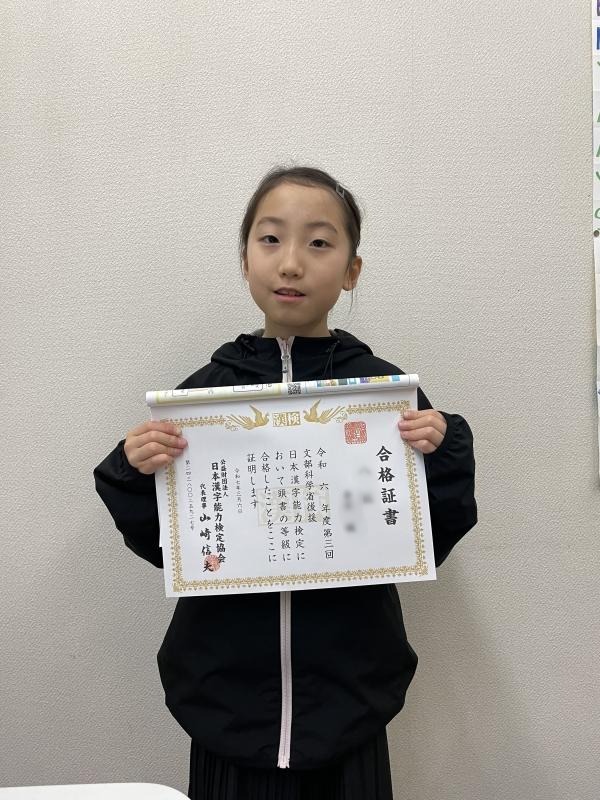 漢検
合格証書
令和六年度第三回
文部科学省後援
日本漢字能力検定に
おいて頭書の等級に
合格したことをここに
証明します
令和七年三月六日
公益財団法人
日本漢字能力検定協会
代表理事 山崎信夫